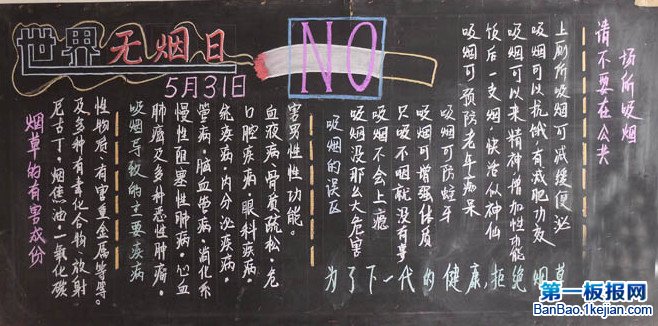 世界无烟日
5月31日
NO
烟草的有害成份
尼古丁·烟焦油·一氧化碳
及多种有毒化合物放射
性物质·有害重金属等等。
吸烟导致的主要疾病
肺癌及多种恶性肿瘤·
慢性阻塞性肺病·心血
管病·脑血管病·消化系
统疾病·内分泌疾病·
口腔疾病·眼科疾病·
血液病·骨质疏松·危
害男性性功能。
吸烟的误区
吸烟没那么大危害
吸烟不会上瘾
只吸不咽就没有事
吸烟可增强体质
吸烟可防蛀牙
吸烟可预防老年痴呆
饭后一支烟,快活似神仙
吸烟可以来精神,增加性功能
吸烟可以抗饿,有减肥功效
上厕所吸烟可减缓便泌
请不要在公共
场所吸烟
为了下一代的健康,拒绝烟草
第一板报网
BanBao.1kejian.com